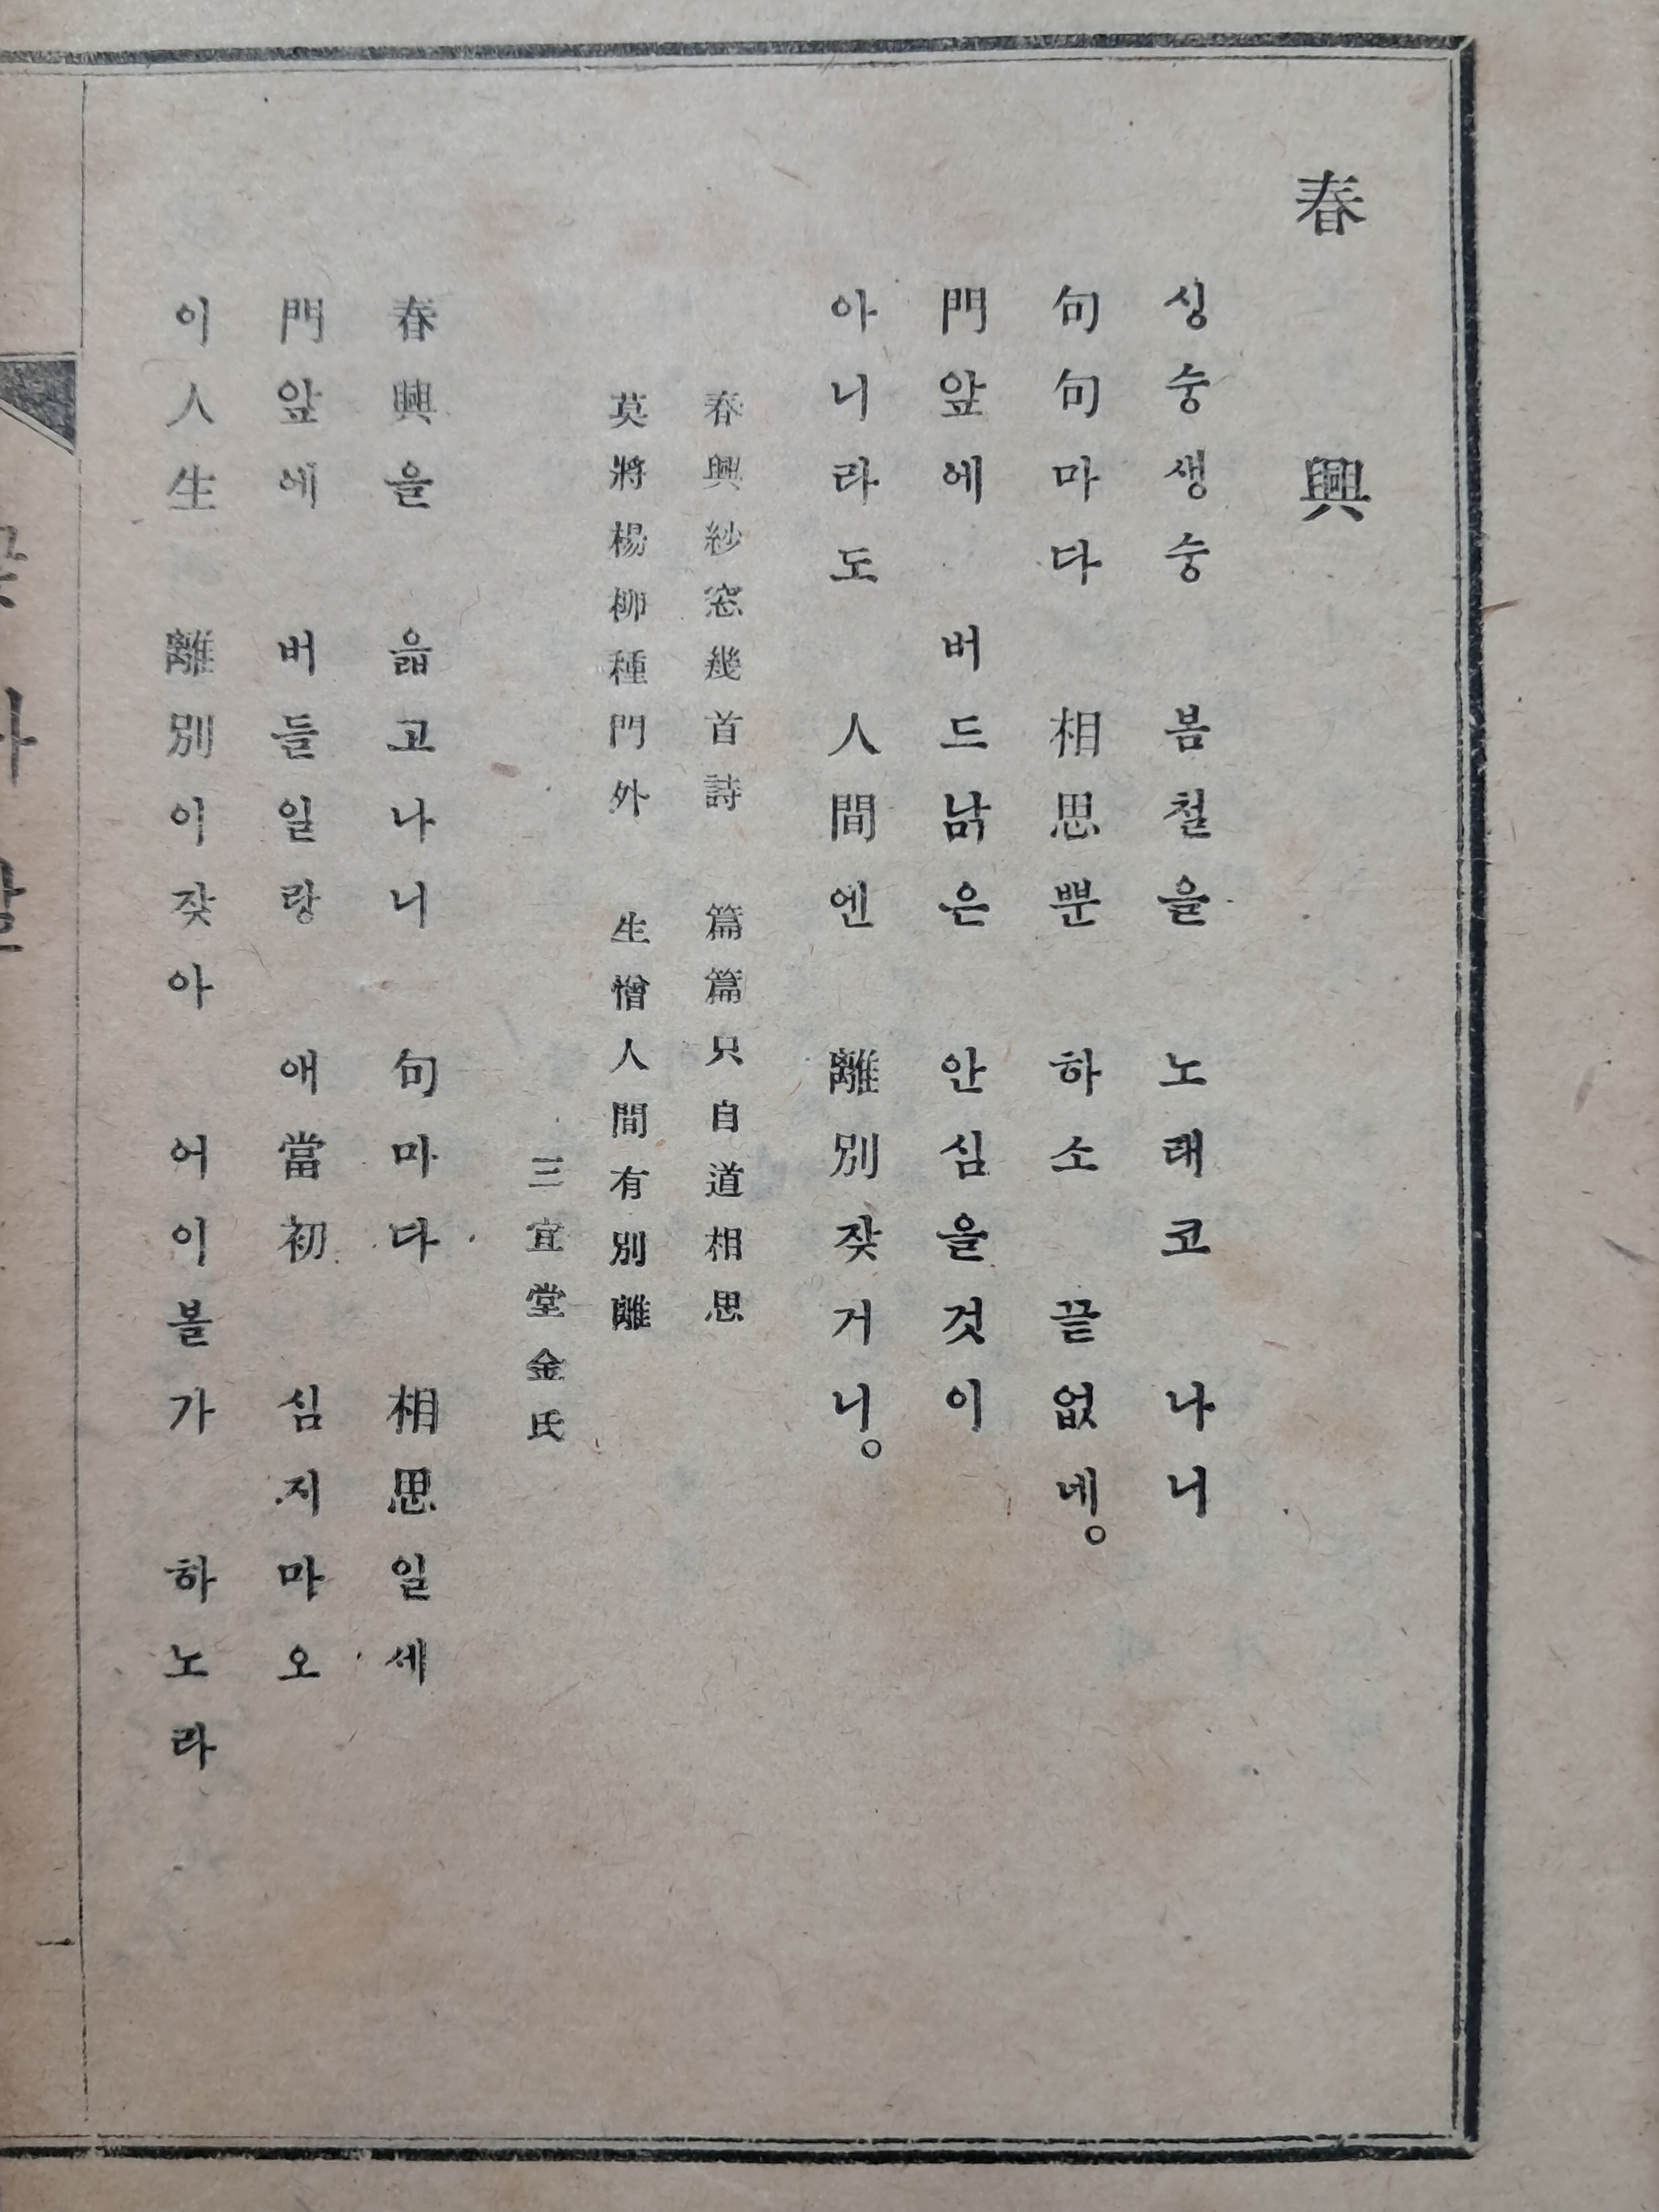 春興
싱숭생숭 봄철을 노래코 나니
句句마다 相思뿐 하소 끝없네。
門앞에 버드낡은 안심을것이
아니라도 人間엔 離別잦거니。
春興紗窓幾首詩 篇篇只自道相思
莫將楊柳種門外 生憎人間有別離
三宜堂金氏
春興을 읇고나니 句마다 相思일세
門앞에 버들일랑 애當初 심지마오
이人生 離別이잦아 어이볼가 하노라
一